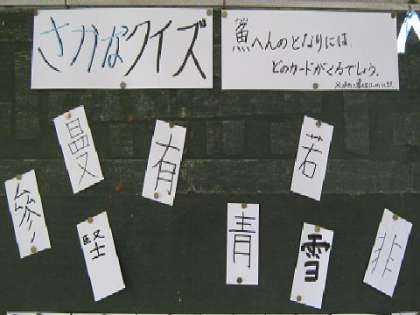 さかなクイズ
魚へんのとなりには、
どのカードがくるでしょう。
曼
有
若
参
堅
青
雪
非